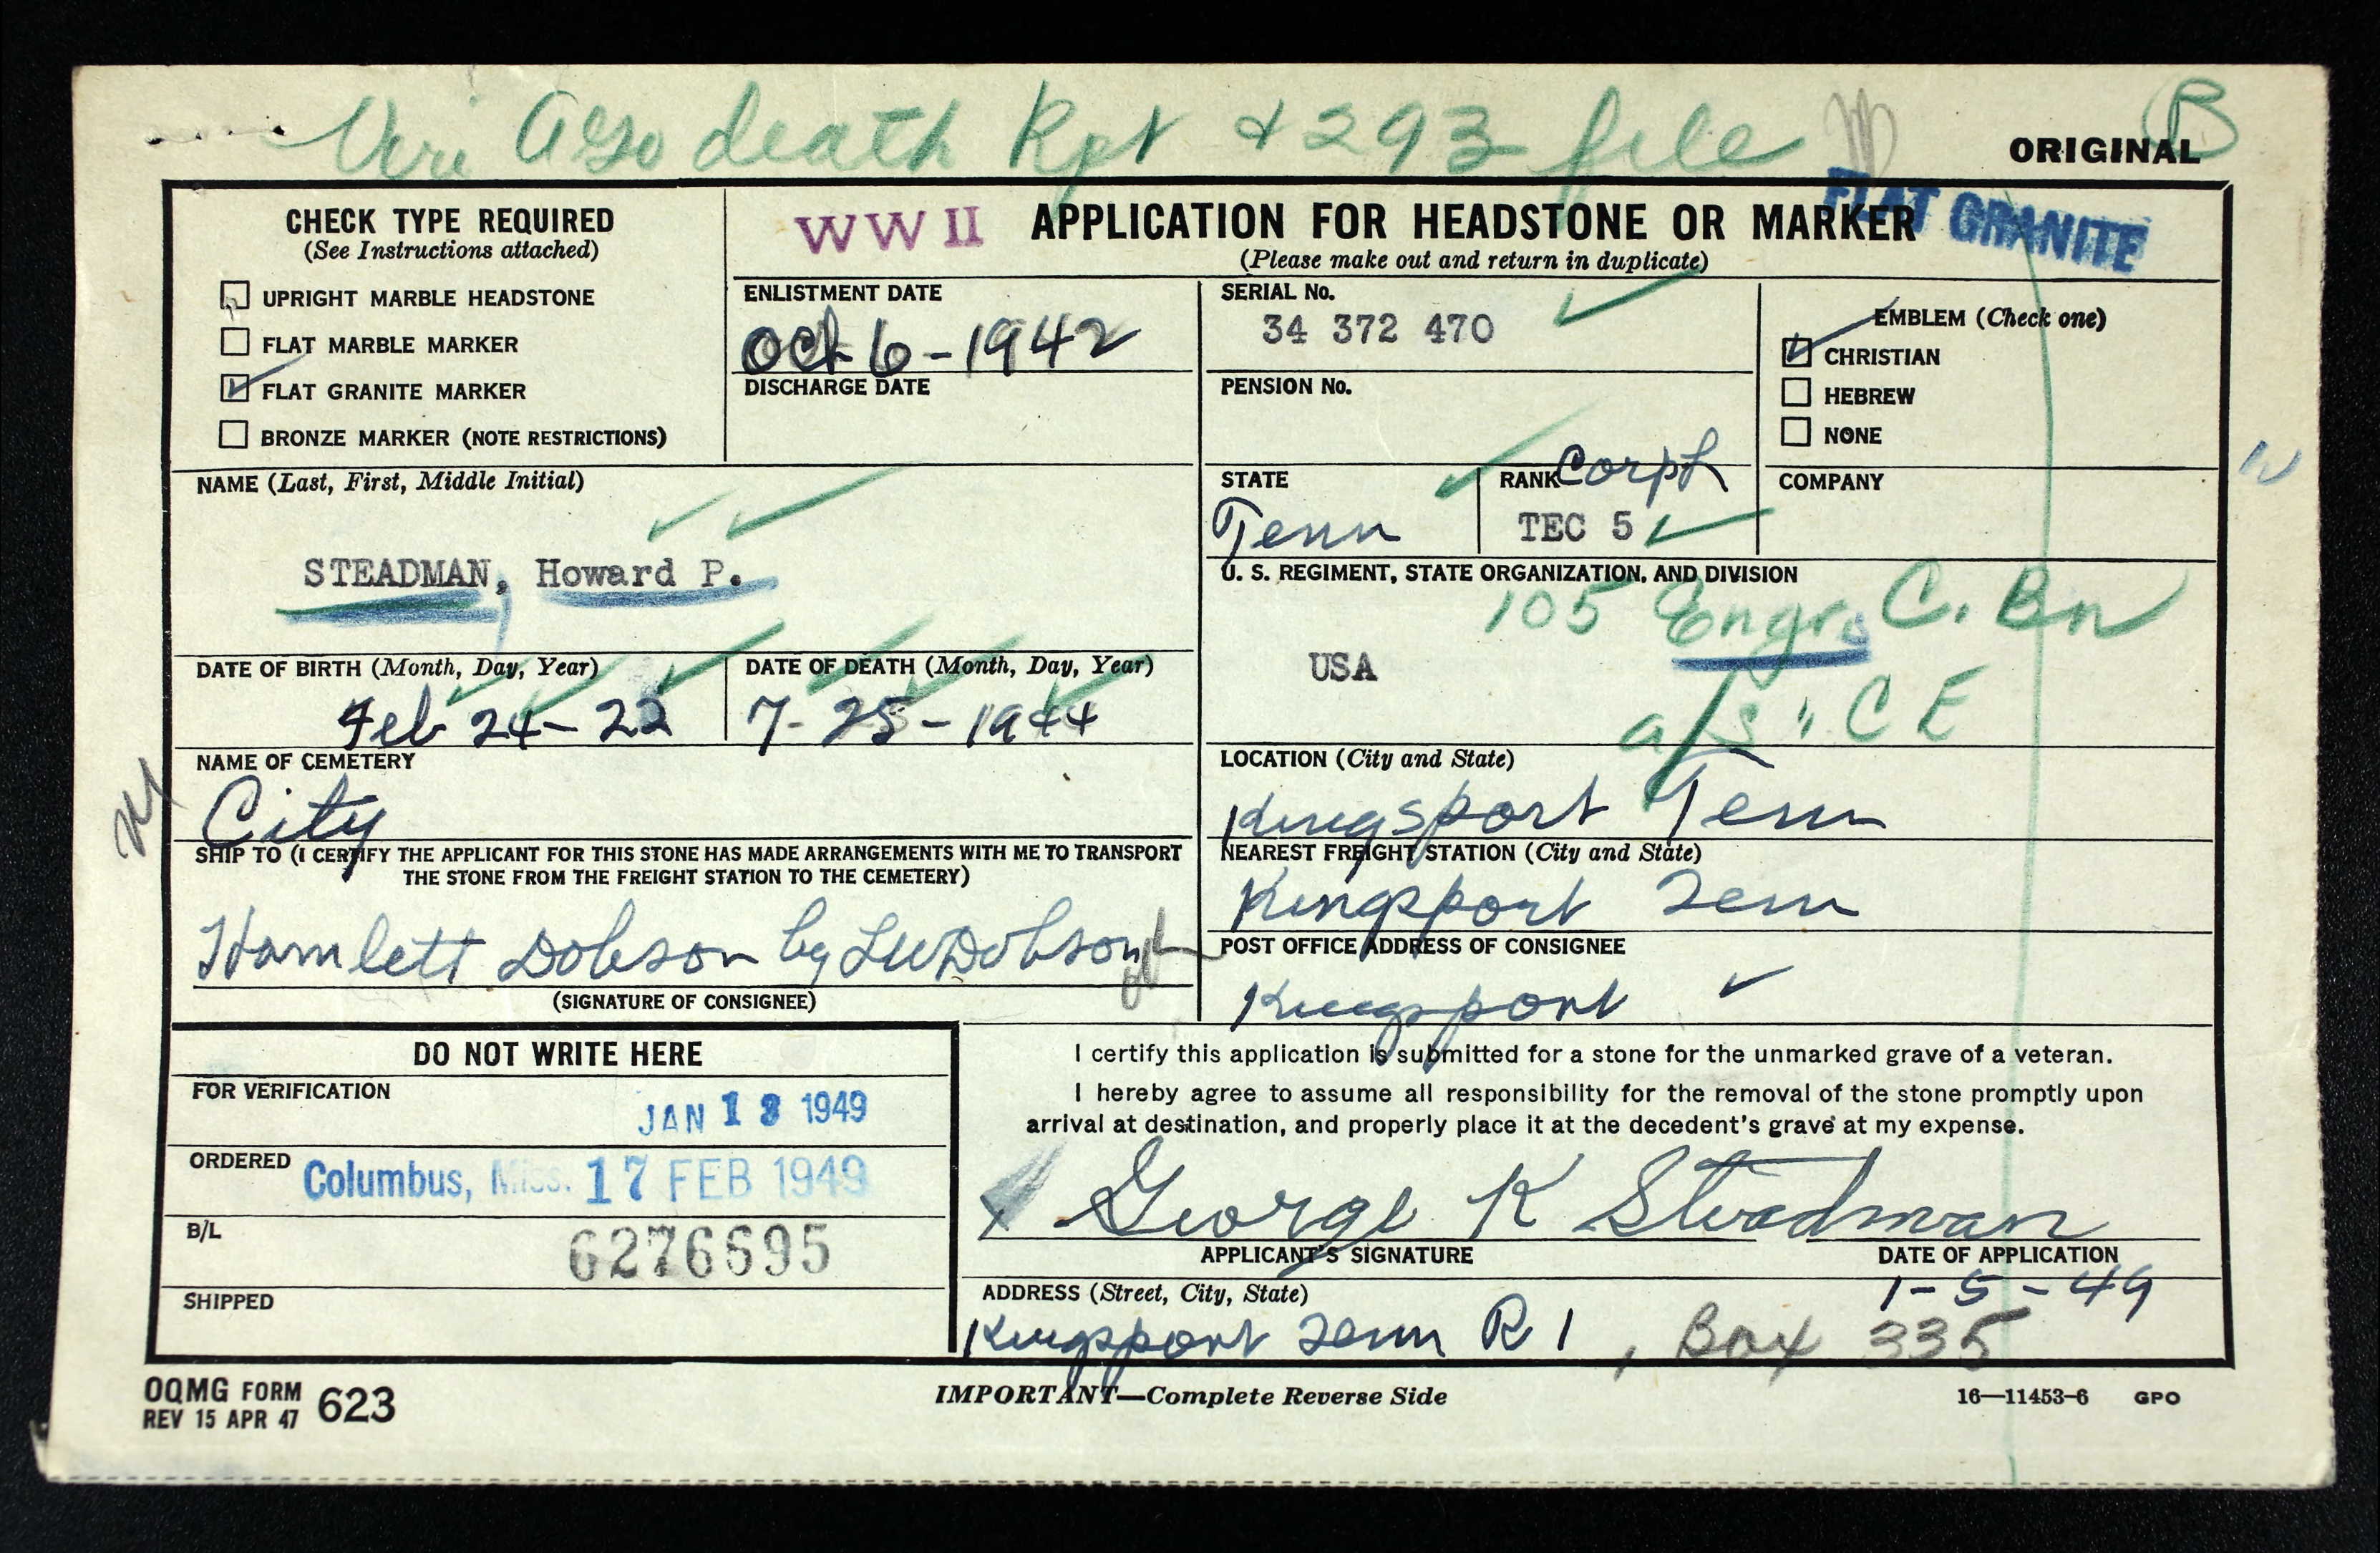 Veri AGO death Rpt & 293 file
B
ORIGINAL
FLAT GRANITE
CHECK TYPE REQUIRED
(See Instructions attached)
UPRIGHT MARBLE HEADSTONE
FLAT MARBLE MARKER
FLAT GRANITE MARKER
BRONZE MARKER (NOTE RESTRICTIONS)
WW II APPLICATION FOR HEADSTONE OR MARKER
(Please make out and return in duplicate)
ENLISTMENT DATE
Oct 6-1942
DISCHARGE DATE
SERIAL No.
34 372 470
PENSION No.
EMBLEM (Check one)
CHRISTIAN
HEBREW
NONE
NAME (Last, First, Middle Initial)
STEADMAN, Howard P.
STATE
Tenn
RANK Corpl
TEC 5
COMPANY
U. S. REGIMENT, STATE ORGANIZATION, AND DIVISION
105 Engr. C. Bn
USA
a/s " C E
DATE OF BIRTH (Month, Day, Year)
Feb 24-22
DATE OF DEATH (Month, Day, Year)
7-25-1944
NAME OF CEMETERY
City
LOCATION (City and State)
Kingsport Tenn
SHIP TO (I CERTIFY THE APPLICANT FOR THIS STONE HAS MADE ARRANGEMENTS WITH ME TO TRANSPORT
THE STONE FROM THE FREIGHT STATION TO THE CEMETERY)
Hamlett Dobson by LW Dobson
(SIGNATURE OF CONSIGNEE)
NEAREST FREIGHT STATION (City and State)
Kingsport Tenn
POST OFFICE ADDRESS OF CONSIGNEE
Kingsport
DO NOT WRITE HERE
FOR VERIFICATION
JAN 13 1949
ORDERED Columbus, Miss. 17 FEB 1949
B/L
6276695
SHIPPED
I certify this application is submitted for a stone for the unmarked grave of a veteran.
I hereby agree to assume all responsibility for the removal of the stone promptly upon
arrival at destination, and properly place it at the decedent's grave at my expense.
X George K Steadman
APPLICANT'S SIGNATURE
DATE OF APPLICATION
1-5-49
ADDRESS (Street, City, State)
Kingsport Tenn R 1, Box 335
OQMG FORM 623
REV 15 APR 47
IMPORTANT—Complete Reverse Side
16—11453-6 GPO